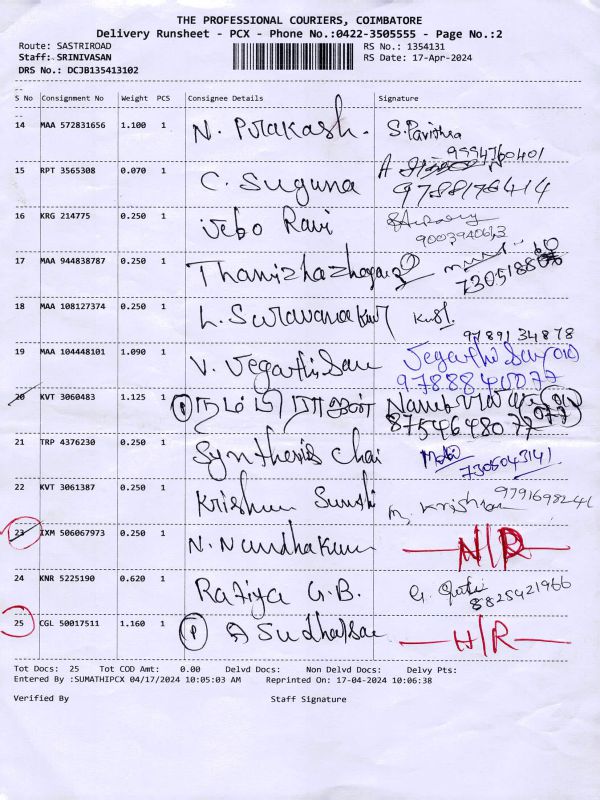 THE PROFESSIONAL COURIERS, COIMBATORE
Delivery Runsheet - PCX - Phone No.:0422-3505555 - Page No.:2
Route: SASTRIROAD RS No.: 1354131
Staff: SRINIVASAN RS Date: 17-Apr-2024
DRS No.: DCJB135413102
S No Consignment No Weight PCS Consignee Details Signature
14 MAA 572831656 1.100 1 N. Prakash. S. Pavithra
9994760401
15 RPT 3565308 0.070 1 C. Suguna A
9788176414
16 KRG 214775 0.250 1 Jebo Ravi
9003940613
17 MAA 944838787 0.250 1
18 MAA 108127374 0.250 1
97891 34878
19 MAA 104448101 1.090 1 V. Jegathisan
9788840077
20 KVT 3060483 1.125 1 P நம்பி ராஜன்
8754648077
21 TRP 4376230 0.250 1 Synthesis Chai
7305043141
22 KVT 3061387 0.250 1 M. Krishnan 9791698241
23 IXM 506067973 0.250 1 N. Nandhakumar N/R
24 KNR 5225190 0.620 1 Raziya G.B. G.
8825421966
25 CGL 50017511 1.160 1 P H/R
Tot Docs: 25 Tot COD Amt: 0.00 Delvd Docs: Non Delvd Docs: Delvy Pts:
Entered By :SUMATHIPCX 04/17/2024 10:05:03 AM Reprinted On: 17-04-2024 10:06:38
Verified By Staff Signature